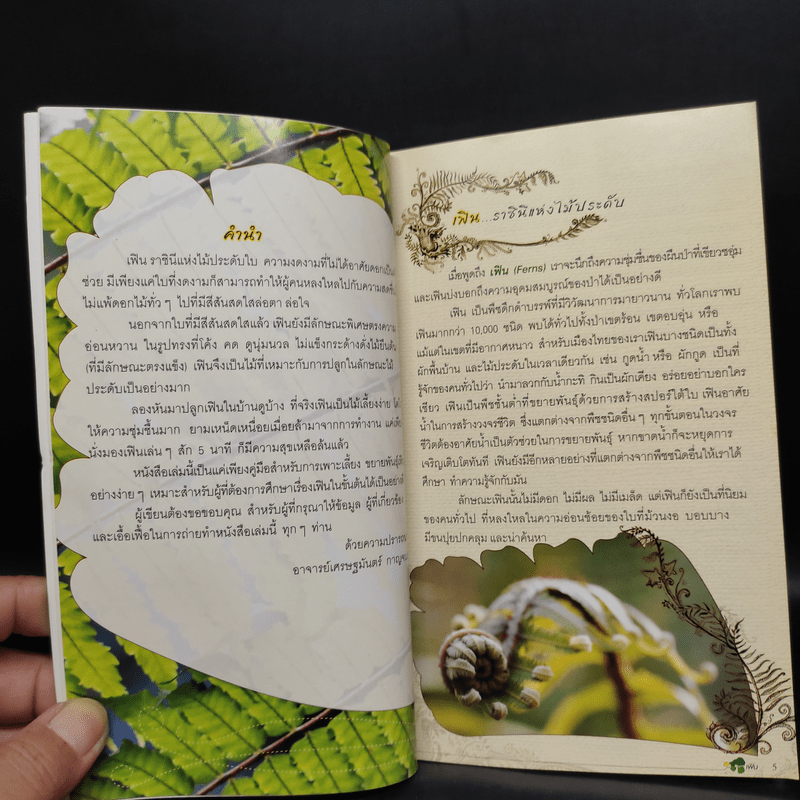 คำนำ
เฟิน ราชินีแห่งไม้ประดับใบ ความงดงามที่ไม่ได้อาศัยดอกเป็น
ช่วย มีเพียงแค่ใบที่งดงามก็สามารถทำให้ผู้คนหลงใหลไปกับความสดชื่น
ไม่แพ้ดอกไม้ทั่ว ๆ ไปที่มีสีสันสดใสล่อตา ล่อใจ
นอกจากใบที่มีสีสันสดใสแล้ว เฟินยังมีลักษณะพิเศษตรงความ
อ่อนหวาน ในรูปทรงที่โค้ง คด ดูนุ่มนวล ไม่แข็งกระด้างดังไม้ยืนต้น
(ที่มีลักษณะตรงแข็ง) เฟินจึงเป็นไม้ที่เหมาะกับการปลูกในลักษณะไม้
ประดับเป็นอย่างมาก
ลองหันมาปลูกเฟินในบ้านดูบ้าง ที่จริงเฟินเป็นไม้เลี้ยงง่าย
ให้ความชุ่มชื้นมาก ยามเหนื่อยเมื่อยล้ามาจากการทำงาน แค่เพียง
นั่งมองเฟินเล่น ๆ สัก 5 นาที ก็มีความสุขเหลือล้นแล้ว
หนังสือเล่มนี้เป็นแค่เพียงคู่มือสำหรับการเพาะเลี้ยง ขยายพันธุ์
อย่างง่าย ๆ เหมาะสำหรับผู้ที่ต้องการศึกษาเรื่องเฟินในขั้นต้นได้เป็นอย่างดี
ผู้เขียนต้องขอขอบคุณ สำหรับผู้ที่กรุณาให้ข้อมูล ผู้ที่เกี่ยวข้อง
และเอื้อเฟื้อในการถ่ายทำหนังสือเล่มนี้ ทุก ๆ ท่าน
ด้วยความปรารถนา
อาจารย์เศรษฐมันตร์
เฟิน...ราชินีแห่งไม้ประดับ
เมื่อพูดถึง เฟิน (Ferns) เราจะนึกถึงความชุ่มชื้นของผืนป่าที่เขียวชอุ่ม
และเฟินบ่งบอกถึงความอุดมสมบูรณ์ของป่าได้เป็นอย่างดี
เฟิน เป็นพืชดึกดำบรรพ์ที่มีวิวัฒนาการมายาวนาน ทั่วโลกเราพบ
เฟินมากกว่า 10,000 ชนิด พบได้ทั่วไปทั้งป่าเขตร้อน เขตอบอุ่น หรือ
แม้แต่ในเขตที่มีอากาศหนาว สำหรับเมืองไทยของเราเฟินบางชนิดเป็นทั้ง
ผักพื้นบ้าน และไม้ประดับในเวลาเดียวกัน เช่น กูดน้ำ หรือ ผักกูด เป็นที่
รู้จักของคนทั่วไปว่า นำมาลวกกับน้ำกะทิ กินเป็นผักเคียง อร่อยอย่าบอกใคร
เชียว เฟินเป็นพืชชั้นต่ำที่ขยายพันธุ์ด้วยการสร้างสปอร์ใต้ใบ เฟินอาศัย
น้ำในการสร้างวงจรชีวิต ซึ่งแตกต่างจากพืชชนิดอื่น ๆ ทุกขั้นตอนในวงจร
ชีวิตต้องอาศัยน้ำเป็นตัวช่วยในการขยายพันธุ์ หากขาดน้ำก็จะหยุดการ
เจริญเติบโตทันที เฟินยังมีอีกหลายอย่างที่แตกต่างจากพืชชนิดอื่นให้เราได้
ศึกษา ทำความรู้จักกับมัน
ลักษณะเฟินนั้นไม่มีดอก ไม่มีผล ไม่มีเมล็ด แต่เฟินก็ยังเป็นที่นิยม
ของคนทั่วไป ที่หลงใหลในความอ่อนช้อยของใบที่ม้วนงอ บอบบาง
มีขนปุยปกคลุม และน่าค้นหา
เฟิน 5